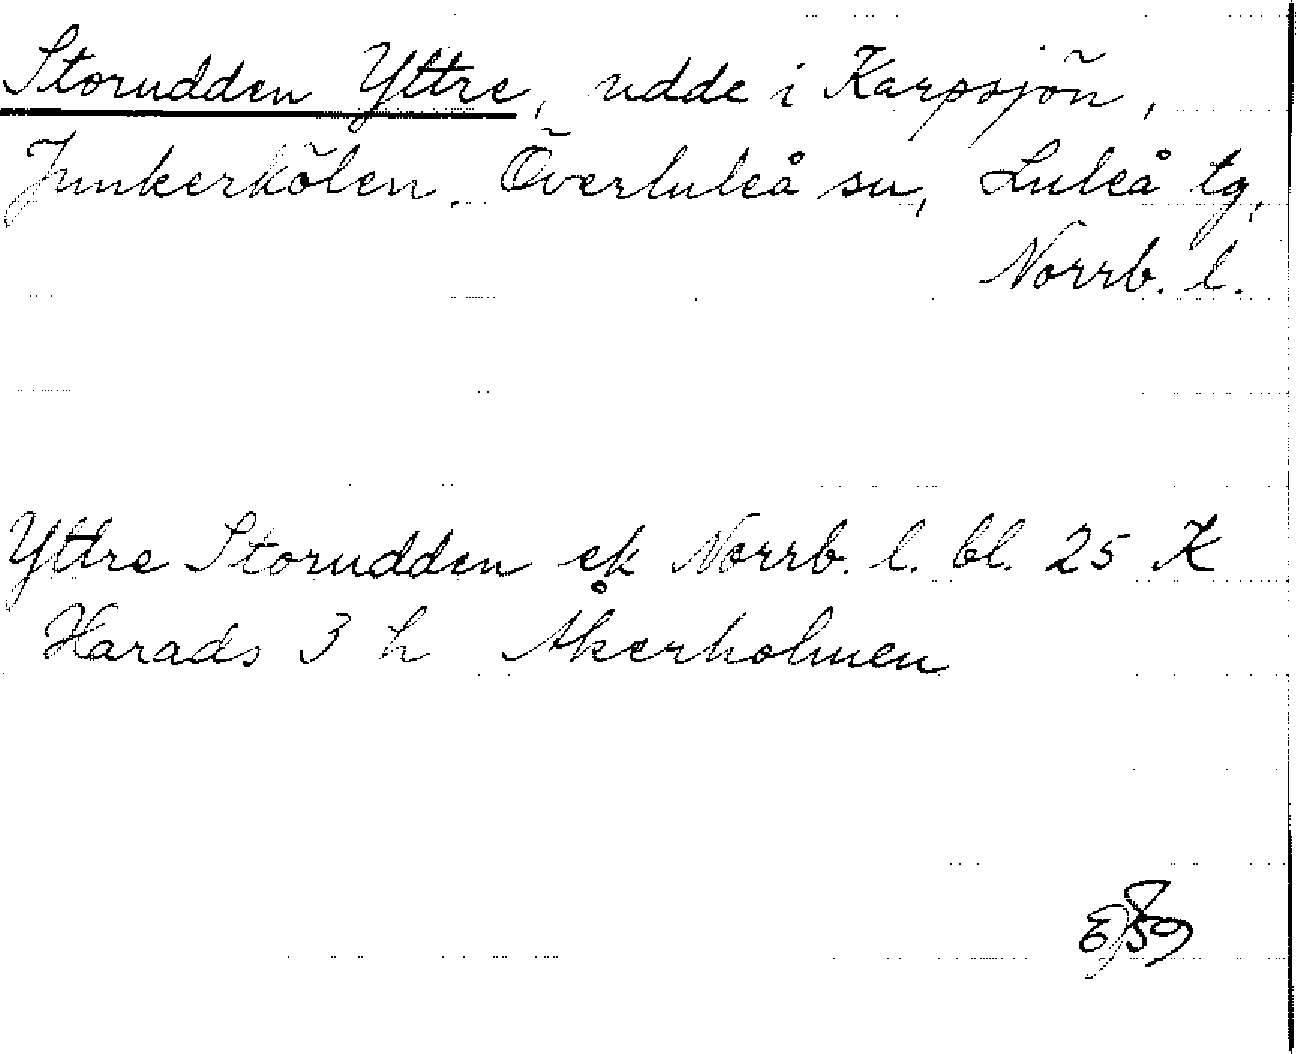 Storudden Yttre, udde i Karpsjön,
Junkerkölen. Överluleå sn, Luleå tg,
Norrb. l.
Yttre Storudden ek Norrb. l. bl. 25 K
Harads 3 h Åkerholmen